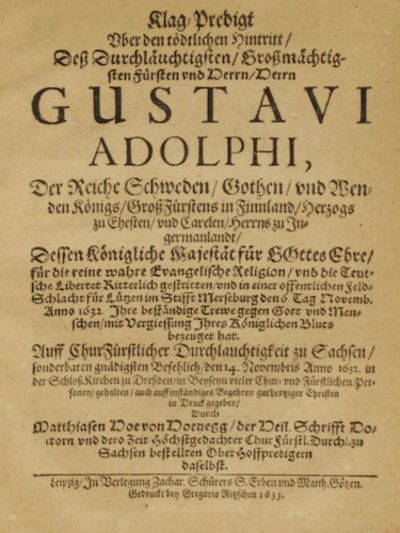 Klag-Predigt
Vber den tödtlichen Hintritt/
Deß Durchläuchtigsten/ Großmächtig-
sten Fürsten vnd Herrn/ Herrn
GUSTAVI
ADOLPHI,
Der Reiche Schweden/ Gothen/ vnd Wen-
den Königs/ GroßFürstens in Finnland/ Herzogs
zu Ehesten/ vnd Carelen/ Herrns zu In-
germanlandt/
Dessen Königliche Majestät für GOttes Ehre/
für die reine wahre Evangelische Religion/ vnd die Teut-
sche Libertet Ritterlich gestritten/ vnd in einer offentlichen Feld-
Schlacht für Lützen im Stifft Merseburg den 6. Tag Novemb.
Anno 1632. Ihre beständige Trewe gegen Gott vnd Men-
schen/ mit Vergiessung Ihres Königlichen Bluts
bezeuget hat.
Auff ChurFürstlicher Durchlauchtigkeit zu Sachsen/
sonderbaren gnädigsten Befehlich/ den 14. Novembris Anno 1632. in
der Schloß Kirchen zu Dresden/ in Beyseyn vieler Chur- vnd Fürstlichen Per-
sonen/ gehalten/ auch auff inständiges Begehren gutherziger Christen
in Druck gegeben/
Durch
Matthiasen Hoe von Hoenegg/ der Heil. Schrifft Do-
ctorn vnd dero Zeit Höchstgedachter ChurFürstl. Durchl. zu
Sachsen bestellten OberHoffpredigern
daselbst.
Leipzig/ In Verlegung Zachar. Schürers S. Erben vnd Matth. Götzen.
Gedruckt bey Gregorio Ritzschen 1633.